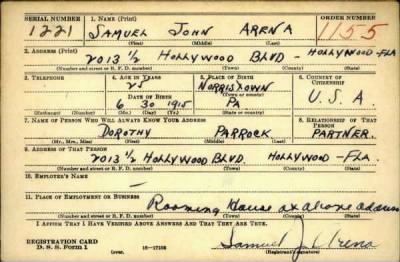 SERIAL NUMBER 1. NAME (Print) ORDER NUMBER
1221 SAMUEL JOHN ARENA 1155
(First) (Middle) (Last)
2. ADDRESS (Print)
2013 1/2 HOLLYWOOD BLVD - HOLLYWOOD - FLA
(Number and street or R. F. D. number) (Town) (County) (State)
3. TELEPHONE 4. AGE IN YEARS 5. PLACE OF BIRTH 6. COUNTRY OF CITIZENSHIP
25 NORRISTOWN
DATE OF BIRTH
6 30 1915 PA U. S. A.
(Mo.) (Day) (Yr.) (State or country)
7. NAME OF PERSON WHO WILL ALWAYS KNOW YOUR ADDRESS 8. RELATIONSHIP OF THAT PERSON
DOROTHY PARROCK PARTNER.
(Mr., Mrs., Miss) (First) (Middle) (Last)
9. ADDRESS OF THAT PERSON
2013 1/2 HOLLYWOOD BLVD. HOLLYWOOD - FLA.
(Number and street or R. F. D. number) (Town) (County) (State)
10. EMPLOYER'S NAME
11. PLACE OF EMPLOYMENT OR BUSINESS
Rooming House at above address
(Number and street or R. F. D. number) (Town) (County) (State)
I AFFIRM THAT I HAVE VERIFIED ABOVE ANSWERS AND THAT THEY ARE TRUE.
REGISTRATION CARD
D. S. S. Form 1 (over) 16-17105 Samuel J. Arena
(Registrant's signature)